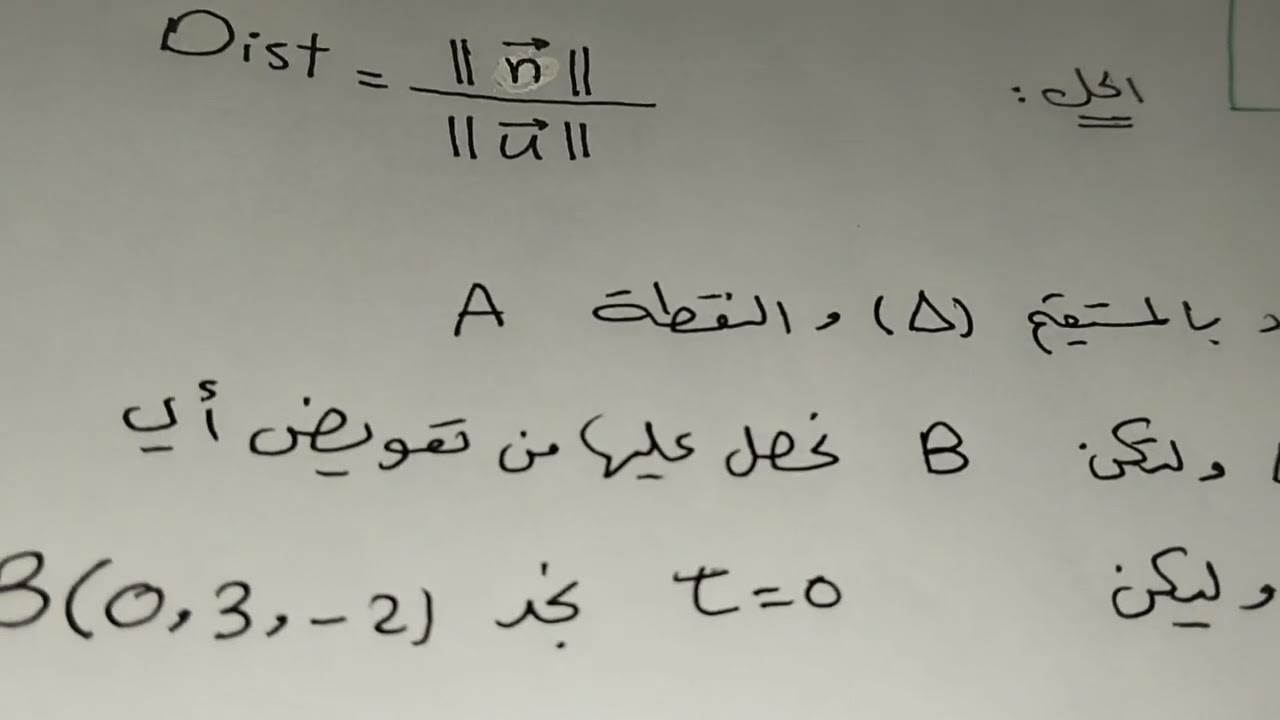 الحل :
Dist = ‖n⃗‖ / ‖u⃗‖
بالمستقيم (Δ) و النقطة A
ولتكن B نحصل عليها من تعويض أي
وليكن t=0 نجد B(0,3,-2)